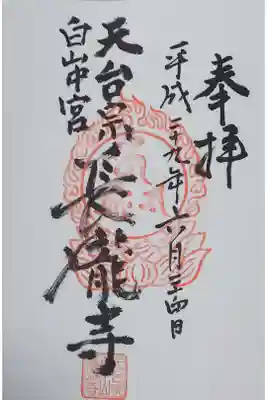 奉拝
平成二十九年六月二十四日
天台宗
白山中宮
長瀧寺